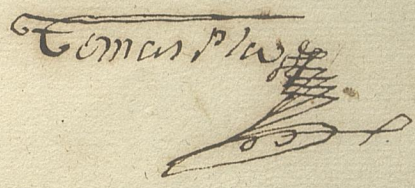 Tomas Pla